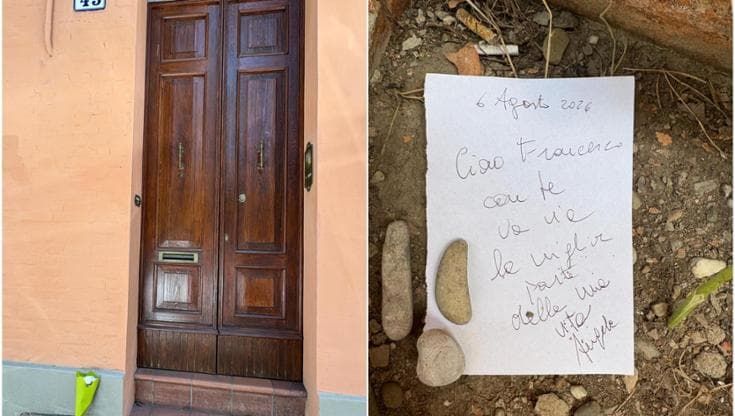 45
6 Agosto 2026
Ciao Francesco
con te
va via
la miglior
parte
della mia
vita
Angela